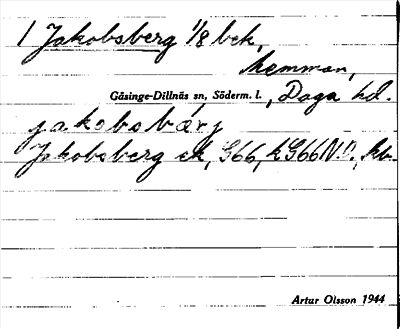 1 Jakobsberg 1/8 bek,
hemman,
Gåsinge-Dillnäs sn, Söderm. l., Daga hd.
jakobsbærj
Jakobsberg ek, G66, kG66N.O., kb.
Artur Olsson 1944